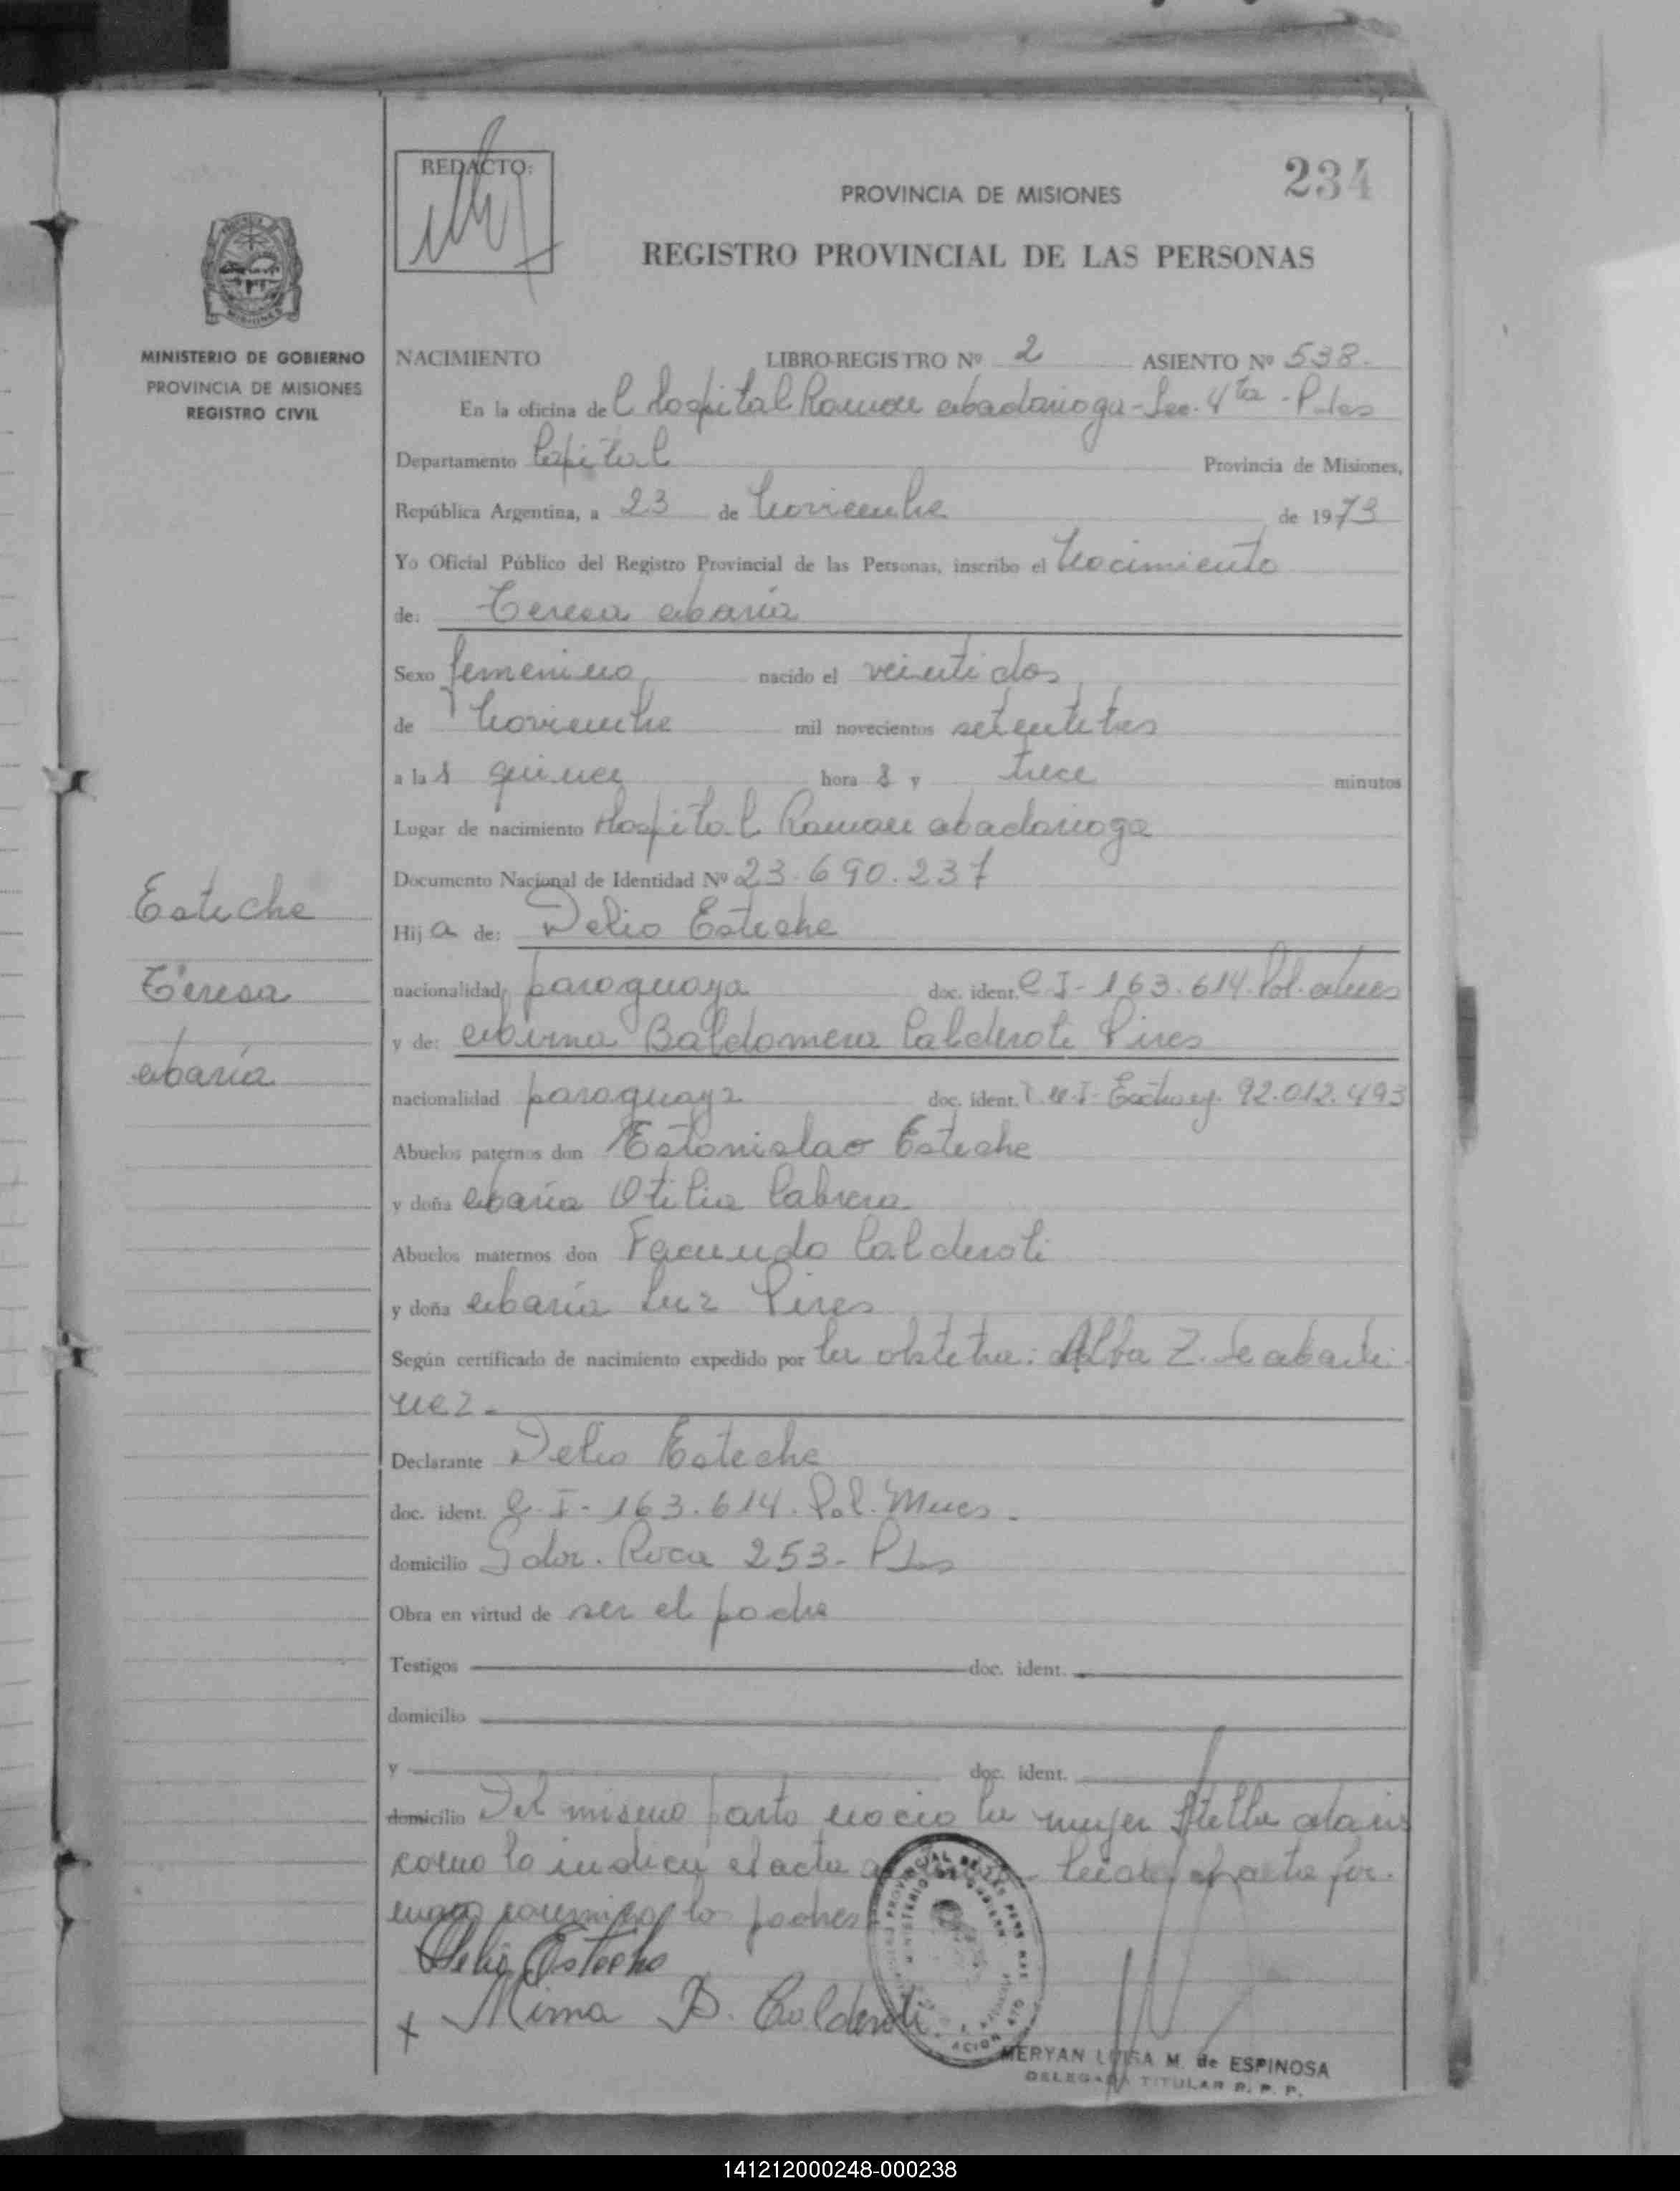 234
REDACTO:
PROVINCIA DE MISIONES
REGISTRO PROVINCIAL DE LAS PERSONAS
MINISTERIO DE GOBIERNO
PROVINCIA DE MISIONES
REGISTRO CIVIL
NACIMIENTO LIBRO-REGISTRO Nº 2 ASIENTO Nº 538.
En la oficina del Hospital Ramon Madariaga - Sec. 4ta - P.das
Departamento Capital Provincia de Misiones,
República Argentina, a 23 de Noviembre de 1973
Yo Oficial Público del Registro Provincial de las Personas, inscribo el Nacimiento
de: Teresa María
Sexo femenino nacido el veintidos
de Noviembre mil novecientos setentitres
a las quince horas y trece minutos
Lugar de nacimiento Hospital Ramon Madariaga
Documento Nacional de Identidad Nº 23.690.237
Esteche
Teresa
María
Hija de: Delio Esteche
nacionalidad paraguaya doc. ident. C.I- 163.614. Pol. Mnes
y de: Mirna Baldomera Calderoti Pires
nacionalidad paraguaya doc. ident. 92.012.493
Abuelos paternos don Estanislao Esteche
y doña María Otilia Cabrera
Abuelos maternos don Facundo Calderoti
y doña María Luz Pires
Según certificado de nacimiento expedido por la obstetra: Alba Z. de Marti
nez -
Declarante Delio Esteche
doc. ident. C.I- 163.614. Pol. Mnes.
domicilio Gdor. Roca 253- Pdas
Obra en virtud de ser el padre
Testigos doc. ident.
domicilio
y doc. ident.
domicilio Del mismo parto nacio la mujer Stella Maris
como lo indica el acta Leida el acta fir-
man los padres
Delio Esteche
x Mirna B. Calderoti
MERYAN LUISA M. de ESPINOSA
DELEGADA TITULAR R. P. P.
141212000248-000238